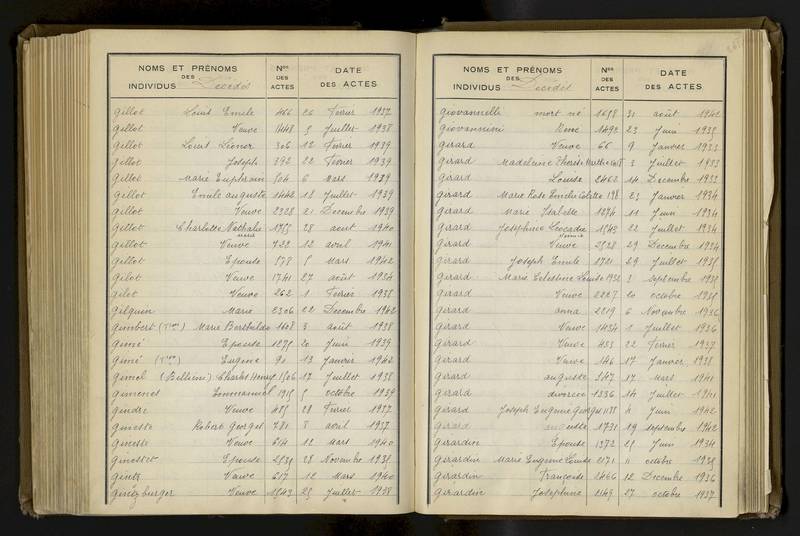 NOMS ET PRÉNOMS DES INDIVIDUS Décédés Nos DES ACTES DATE DES ACTES
Gillot Louis Emile 466 26 Fevrier 1937
Gillot Veuve 1448 5 Juillet 1938
Gillot Louis Léonor 306 12 Fevrier 1939
Gillot Joseph 392 22 Fevrier 1939
Gillot Marie Euphrasie 504 6 Mars 1939
Gillot Emile auguste 1442 18 Juillet 1939
Gillot Veuve 2328 21 Decembre 1939
Gillot Charlotte Nathalie Marie 1755 28 aout 1940
Gillot Veuve 722 12 avril 1941
Gillot Epouse 578 8 Mars 1942
Gilot Veuve 1741 27 août 1934
Gilot Veuve 262 1 Fevrier 1938
Gilquin Marie 2306 22 Decembre 1942
Gimbert Marie 1608 3 août 1938
Gimé Epouse 1275 20 Juin 1939
Gimé Eugene 90 13 Janvier 1942
Gimel Charles Henry 1506 17 Juillet 1938
Gimenet Emmanuel 1915 5 octobre 1939
Gindre Veuve 485 28 Fevrier 1937
Ginesta Robert Georges 781 8 avril 1937
Ginesta Veuve 614 12 Mars 1940
Ginestet Epouse 28 Novembre 1938
Gintz Veuve 617 12 Mars 1940
Gintzburger Veuve 1543 25 Juillet 1938
NOMS ET PRÉNOMS DES INDIVIDUS Décédés Nos DES ACTES DATE DES ACTES
Giovannelli mort né 1658 31 août 1942
Giovannini Rene 1492 23 Juin 1935
Girard Veuve 66 9 Janvier 1933
Girard Madeleine Therese Marthe 3 Juillet 1933
Girard Louise 2462 14 Decembre 1933
Girard Marie Rose Emilie Colette 198 23 Janvier 1934
Girard Marie Isabelle 1274 11 Juin 1934
Girard Joséphine Léocadie 1543 22 Juillet 1934
Girard Veuve 2528 29 Decembre 1934
Girard Joseph Emile 1721 29 Juillet 1935
Girard Marie Celestine Louise 1932 3 septembre 1935
Girard Veuve 2227 20 octobre 1935
Girard anna 2219 6 Novembre 1936
Girard Veuve 1434 1 Juillet 1936
Girard Veuve 433 22 Fevrier 1937
Girard Veuve 146 17 Janvier 1938
Girard auguste 547 17 Mars 1941
Girard divorcée 1336 14 Juillet 1941
Girard Joseph Eugene Georges 1138 4 Juin 1942
Girard auguste 1731 19 septembre 1942
Girardin Epouse 1372 25 Juin 1934
Girardin Marie Eugenie Louise 2171 11 octobre 1935
Girardin Françoise 2466 12 Decembre 1936
Girardin Josephine 2149 27 octobre 1937